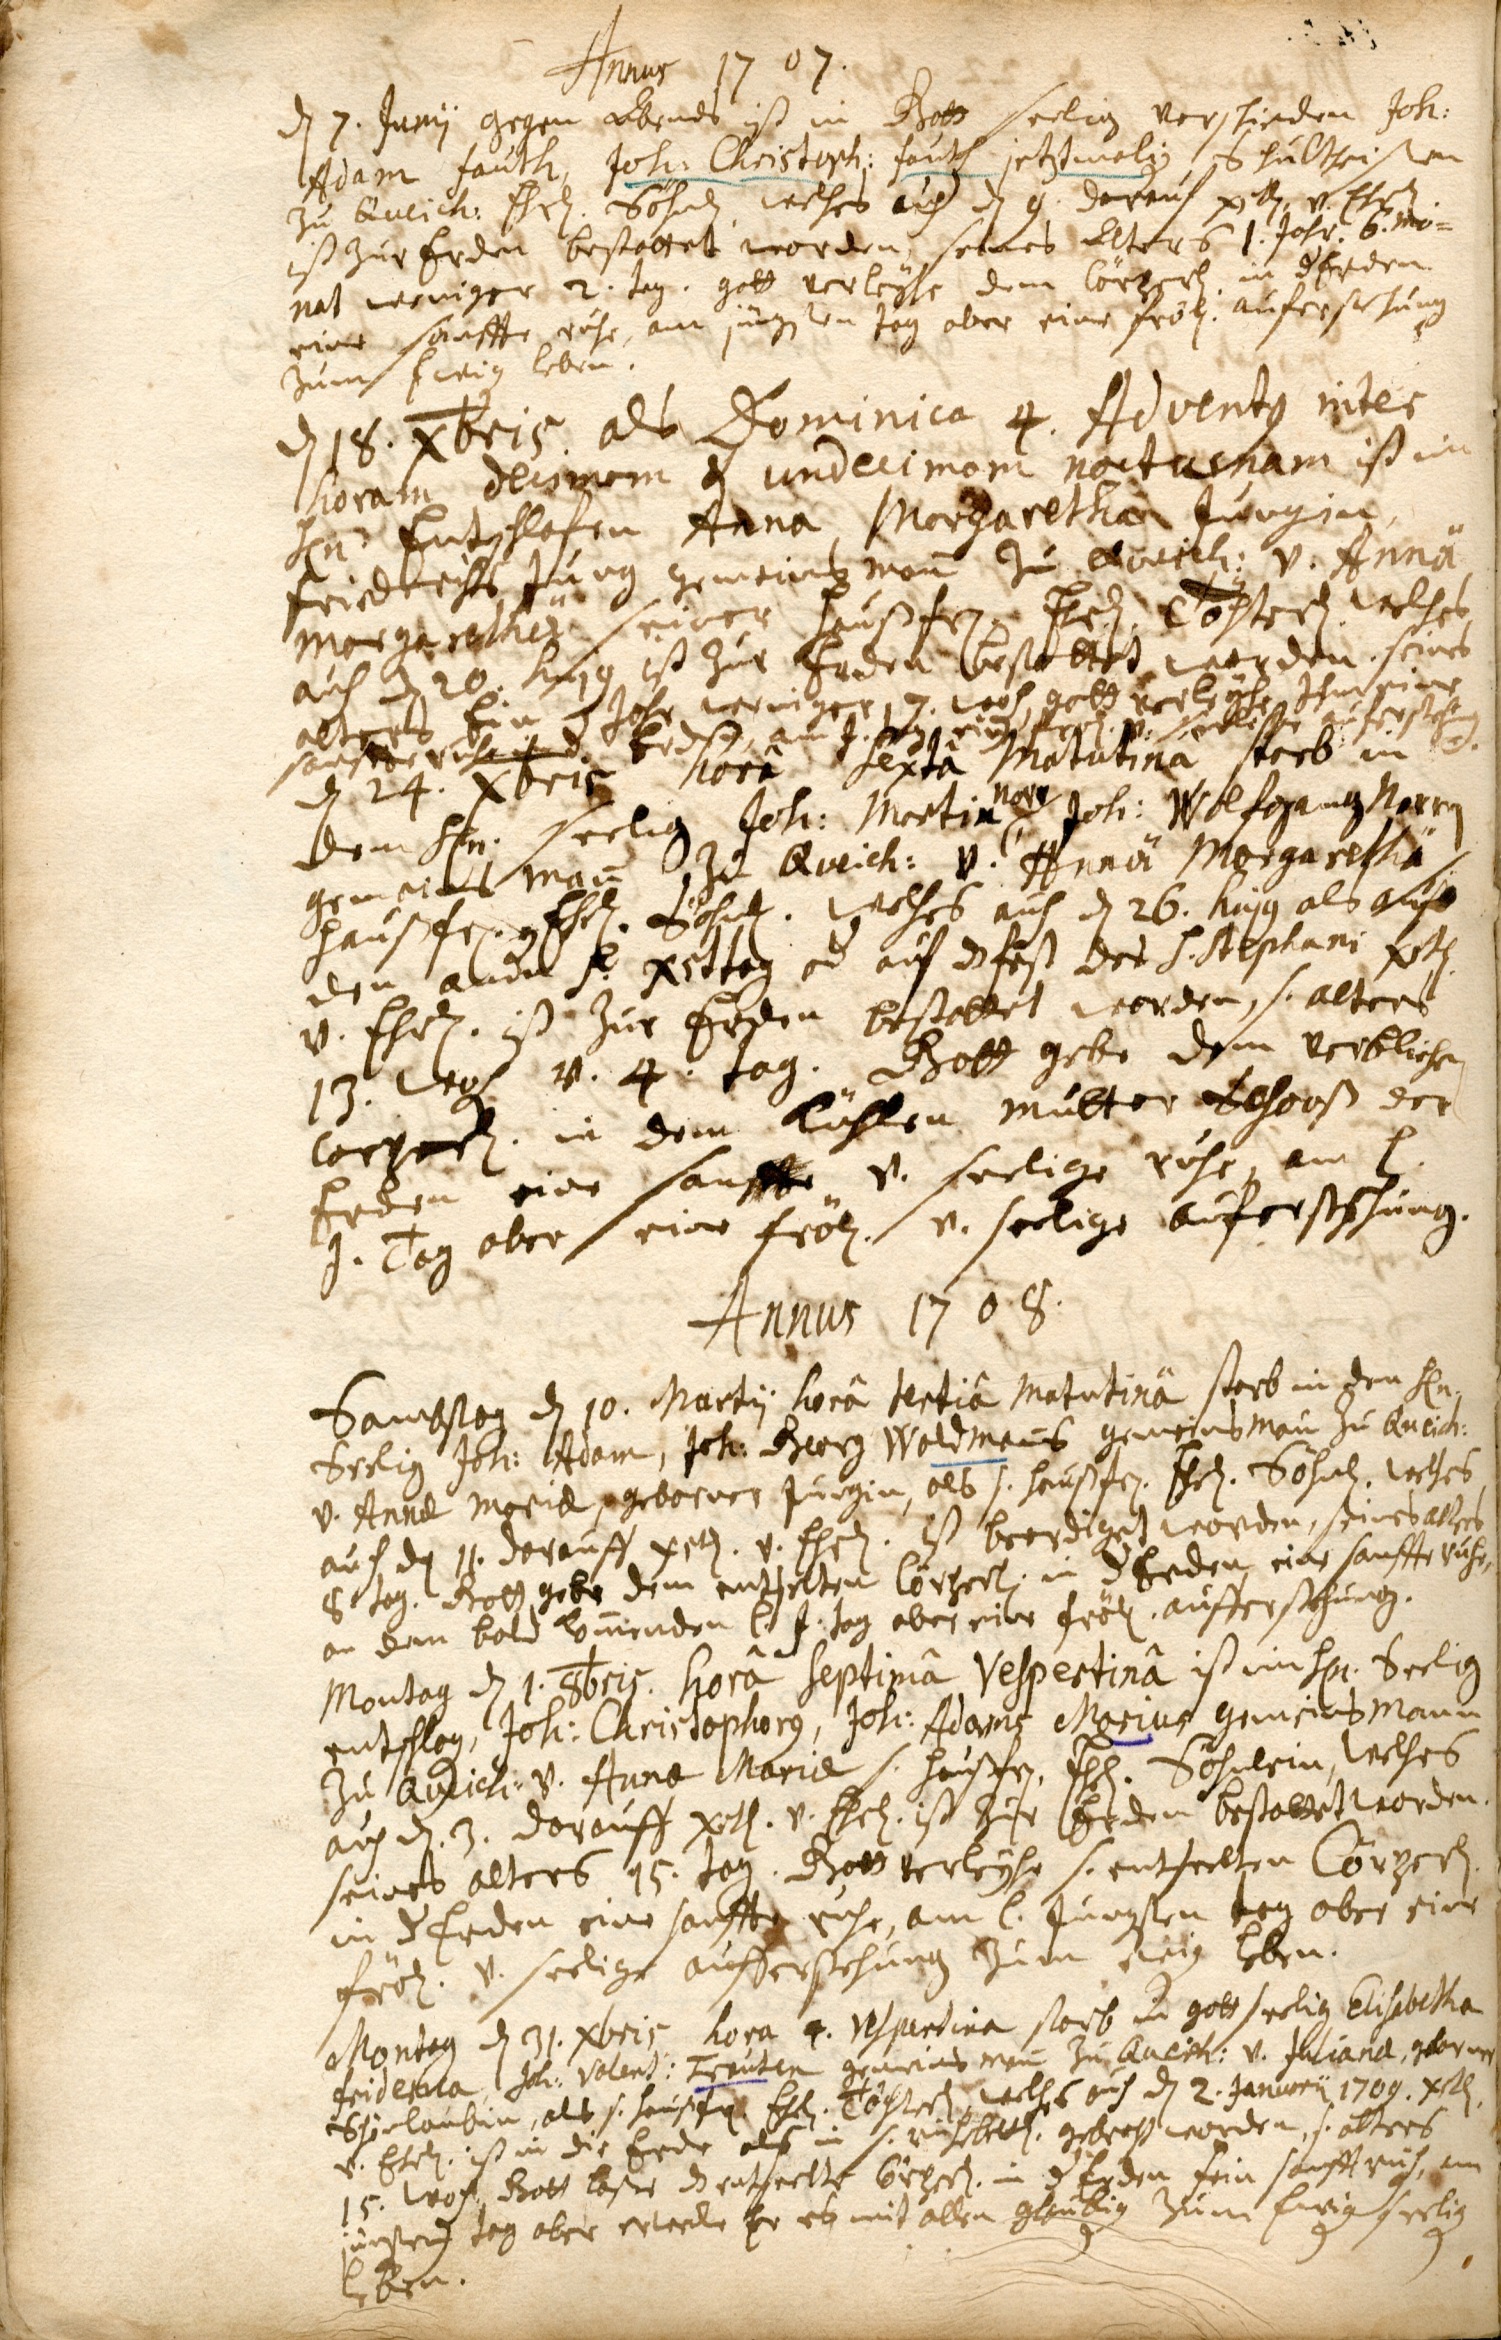 Annus 1707.
d 7. Junij gegen abends ist in Gott seelig verschieden Joh:
Adam fauth, Joh: Christoph: fauth jetztmalig Schultheisen
zu Queich: Ehel. Söhnl. welches auch d 9. darauf xstl. v. Ehrl.
ist zur Erden bestattet worden, seines Alters 1. Jahr. 6. mo=
nat weniger 2. tag. gott verleyhe dem Cörperl. in d Erden
eine sanffte ruhe, am jüngsten tag aber eine fröl. auferstehung
zum Ewig leben.
d 18. Xbris als Dominica 4. Advent9 inter
horam decimam & undecimam nocturnam ist im
Hn Entschlafen Anna Margaretha Jungin,
friedrichs Jung gemeinsman zu Queich: v. Annä
Margarethä seiner haußfr. Ehel. Töchterl. welches
auch d 20. huj9 ist zur Erden bestattet worden. seines
alters Ein Jahr weniger 7. woch gott verleyhe Ihm eine
sanffte ruhe d Erden, am J. tag eine fröl. v. seelige auferstehung.
d 24. Xbris horâ sextâ Matutinâ starb in
dem Hn. seelig Joh: Martin Joh: Wolfgang
gemeins man zu Queich: v. Annä Margarethä
haußfr. Ehel. Söhnl. welches auch d 26. huj9 als auf
den andn xsttag od auf d fest des S. Stephani xstl.
v. Ehrl. ist zur Erden bestattet worden, s. alters
13. woch v. 4. tag. Gott gebe dem verblichen
Corperl. in dem kühlen mutter Schooß der
Erden eine sanffte v. seelige ruhe, am l.
J. Tag aber eine fröl. v. seelige auferstehung.
Annus 1708.
Sambstag d 10. Martij horâ tertiâ Matutinâ starb in dem Hn.
Seelig Joh: Adam, Joh: Georg Waldmans gemeinsman zu Queich:
v. Annä Mariä, geborner Jungin, als s. haußfr. Ehel. Söhnl. welches
auch den 11. darauff xstl. v. Ehrl. ist beerdiget worden, seines alters
8 tag. Gott gebe dem entseelten Cörperl. in d Erden eine sanffte ruhe,
an dem bald komenden l. J. tag aber eine fröl. aufferstehung.
Montag d 1. 8bris. horâ septimâ Vespertinâ ist im Hn. Seelig
entschlaf, Joh: Christophor9, Joh: Adams Marius gemeinsmann
zu Queich: v. Annä Mariä s. haußfr. Ehel. Söhnlein, welches
auch d. 3. darauff xstl. v. Ehrl. ist zur Erden bestattet worden.
seines alters 15. tag. Gott verleyhe s. entseelten Cörperl.
in d Erden eine sanffte ruhe, am l. Jüngsten tag aber eine
fröl. v. seelige aufferstehung zum ewig leben.
Montag d 31. Xbris hora 4. Vespertina starb in gott seelig Elisabetha
Joh: Valent: Trauten gemeins man zu Queich: v. Julianä, geborner
als s. haußfr. Ehel. Töchterl. welches auch d 2. Januarij 1709. xstl.
v. Ehrl. ist in die Erde als in s. ruhebettl. gebracht worden, s. alters
15. woch. Gott lasse d entseelte Cörperl. in d Erden fein sanfft ruh, am
jüngsten tag aber erwecke Er es mit allen gläubig zum Ewig seelig
leben.